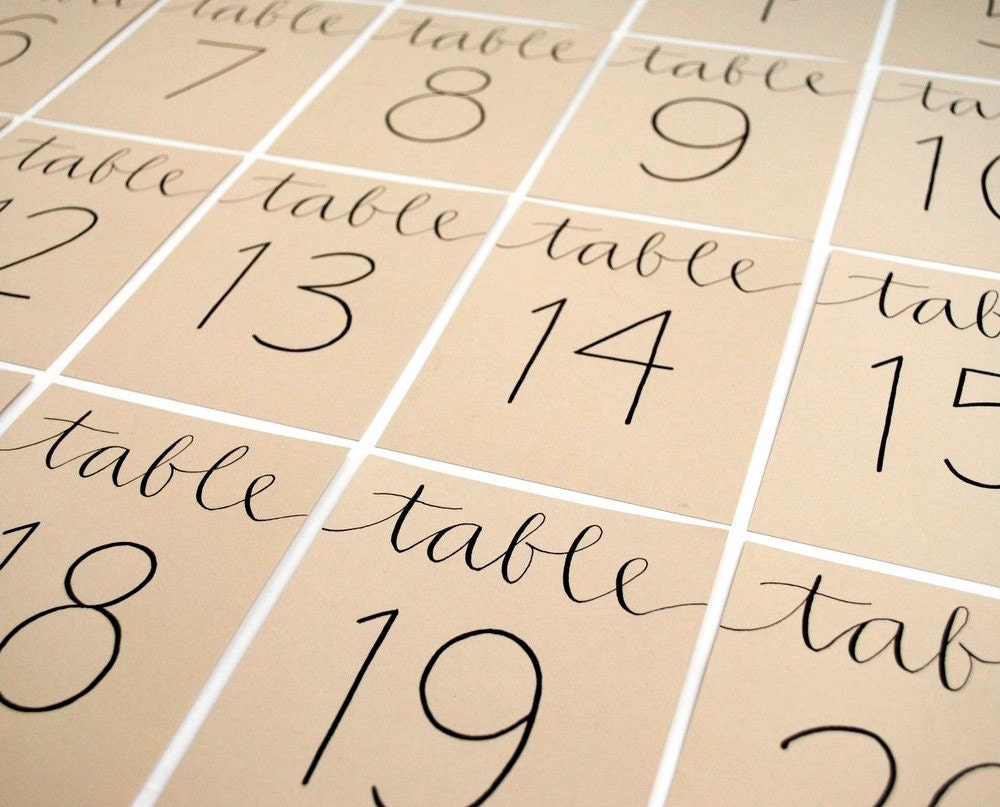 table
7
table
8
table
9
ta
10
table
12
table
13
table
14
tab
15
table
18
table
19
tab
20